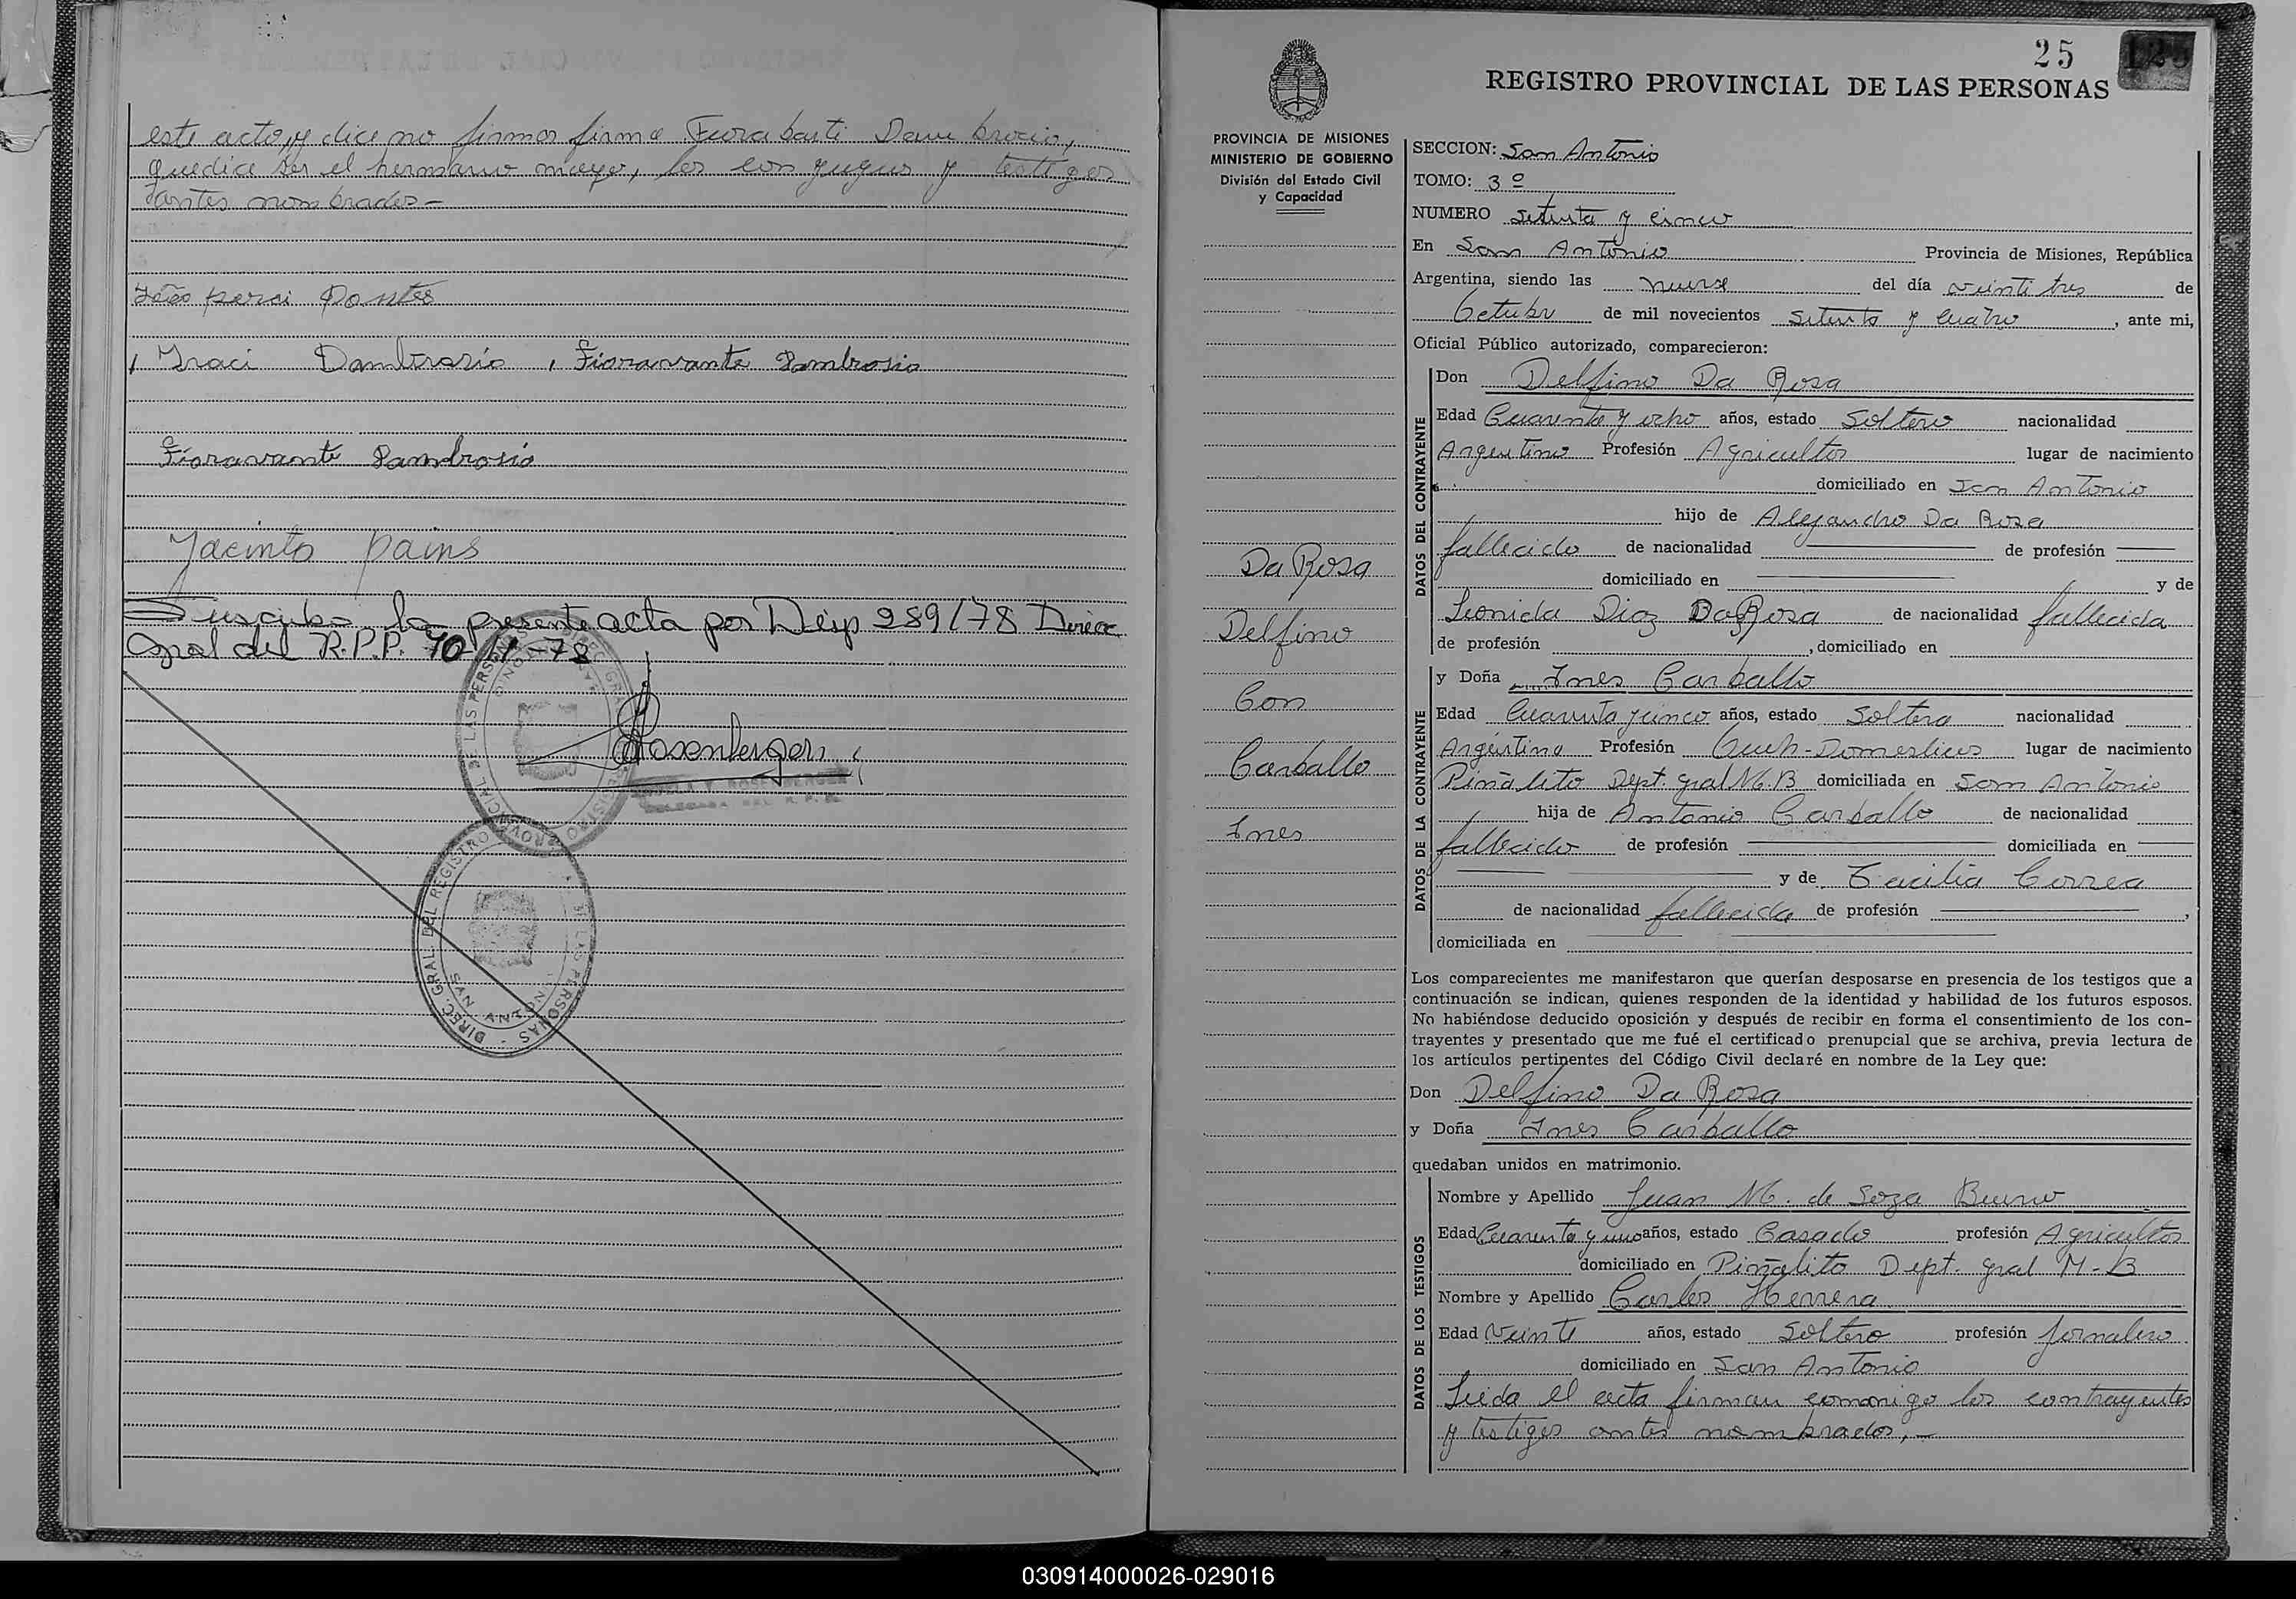 este acto, y dice no firmar firma Fiorabanti Dambrocio,
que dice ser el hermano mayor, los conyugues y testigos
antes nombrados -
João perci Pontes
Iraci Dambrosio, Fioravante Dambrosio
Fioravante Dambrosio
Jacinto pains
Suscribo la presente acta por Disp 289/78 Direcc
Gral del R.P.P. 10/11-78
Rosenberger
DIREC. GRAL. DEL REGISTRO PROVINCIAL DE LAS PERSONAS
DIREC. GRAL. DEL REGISTRO DE LAS PERSONAS -
SAN ANTONIO
25
125
REGISTRO PROVINCIAL DE LAS PERSONAS
PROVINCIA DE MISIONES
MINISTERIO DE GOBIERNO
División del Estado Civil
y Capacidad
Da Rosa
Delfino
Con
Carballo
Ines
SECCION: San Antonio
TOMO: 3º
NUMERO setenta y cinco
En San Antonio Provincia de Misiones, República
Argentina, siendo las nueve del día veinti tres de
Octubre de mil novecientos setenta y cuatro, ante mi,
Oficial Público autorizado, comparecieron:
DATOS DEL CONTRAYENTE
Don Delfino Da Rosa
Edad Cuarenta y ocho años, estado Soltero nacionalidad
Argentino Profesión Agricultor lugar de nacimiento
domiciliado en San Antonio
hijo de Alejandro Da Rosa
fallecido de nacionalidad de profesión
domiciliado en y de
Leonida Diaz Da Rosa de nacionalidad fallecida
de profesión , domiciliado en
DATOS DE LA CONTRAYENTE
y Doña Ines Carballo
Edad Cuarenta y cinco años, estado Soltera nacionalidad
Argentina Profesión Queh-Domesticos lugar de nacimiento
Piñalito Dept. gral M.B domiciliada en San Antonio
hija de Antonio Carballo de nacionalidad
fallecido de profesión domiciliada en
y de Cecilia Correa
de nacionalidad fallecida de profesión ,
domiciliada en
Los comparecientes me manifestaron que querían desposarse en presencia de los testigos que a
continuación se indican, quienes responden de la identidad y habilidad de los futuros esposos.
No habiéndose deducido oposición y después de recibir en forma el consentimiento de los con-
trayentes y presentado que me fué el certificado prenupcial que se archiva, previa lectura de
los artículos pertinentes del Código Civil declaré en nombre de la Ley que:
Don Delfino Da Rosa
y Doña Ines Carballo
quedaban unidos en matrimonio.
DATOS DE LOS TESTIGOS
Nombre y Apellido Juan M. de Soza Bueno
Edad Cuarenta y uno años, estado Casado profesión Agricultor
domiciliado en Piñalito Dept. gral M-B
Nombre y Apellido Carlos Herrera
Edad Veinte años, estado Soltero profesión Jornalero
domiciliado en San Antonio
Leida el acta firman comonigo los contrayentes
y testigos antes nombrados, -
030914000026-029016